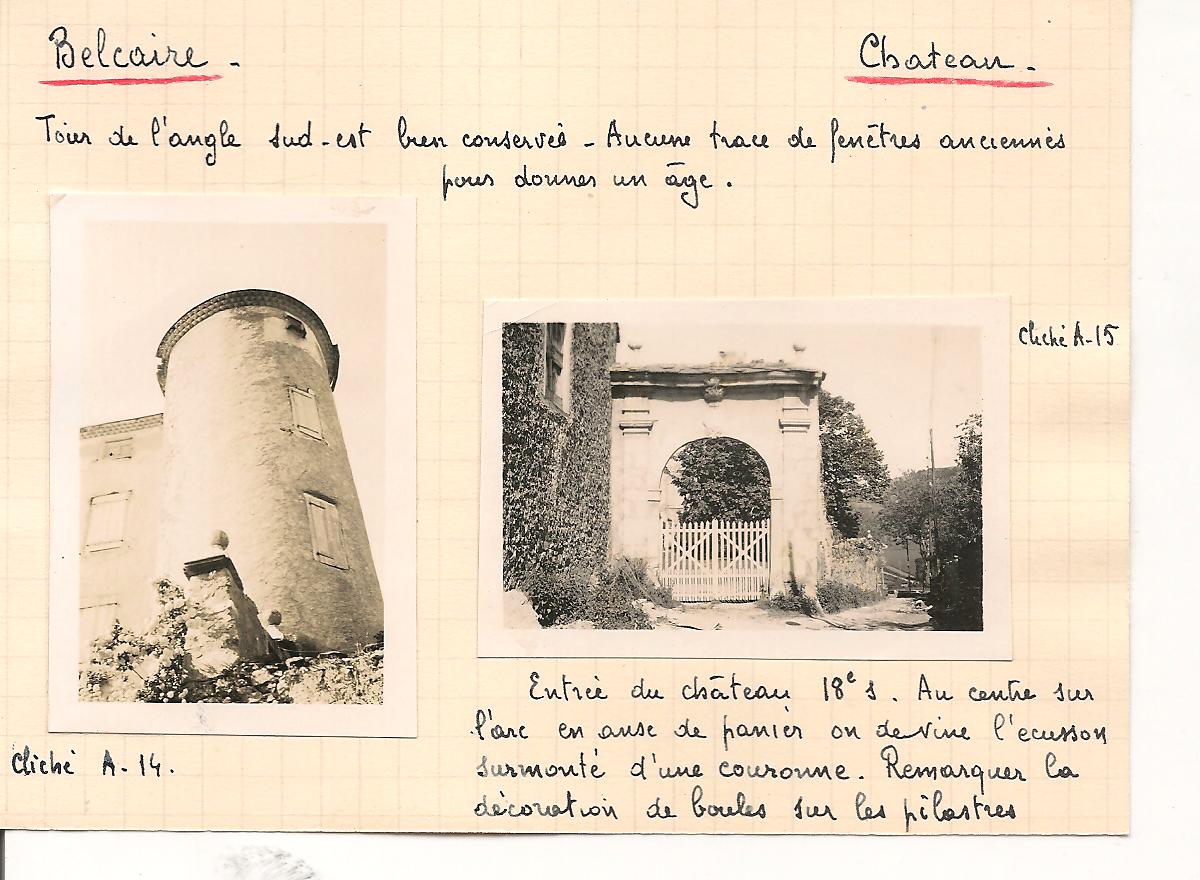 Belcaire - Chateau -
Tour de l'angle sud-est bien conservée - Aucune trace de fenêtres anciennes
pour donner un âge.
Cliché A-15
Entrée du château 18e s. Au centre sur
l'arc en anse de panier on devine l'ecusson
surmonté d'une couronne. Remarquer la
décoration de boules sur les pilastres
Cliché A-14.